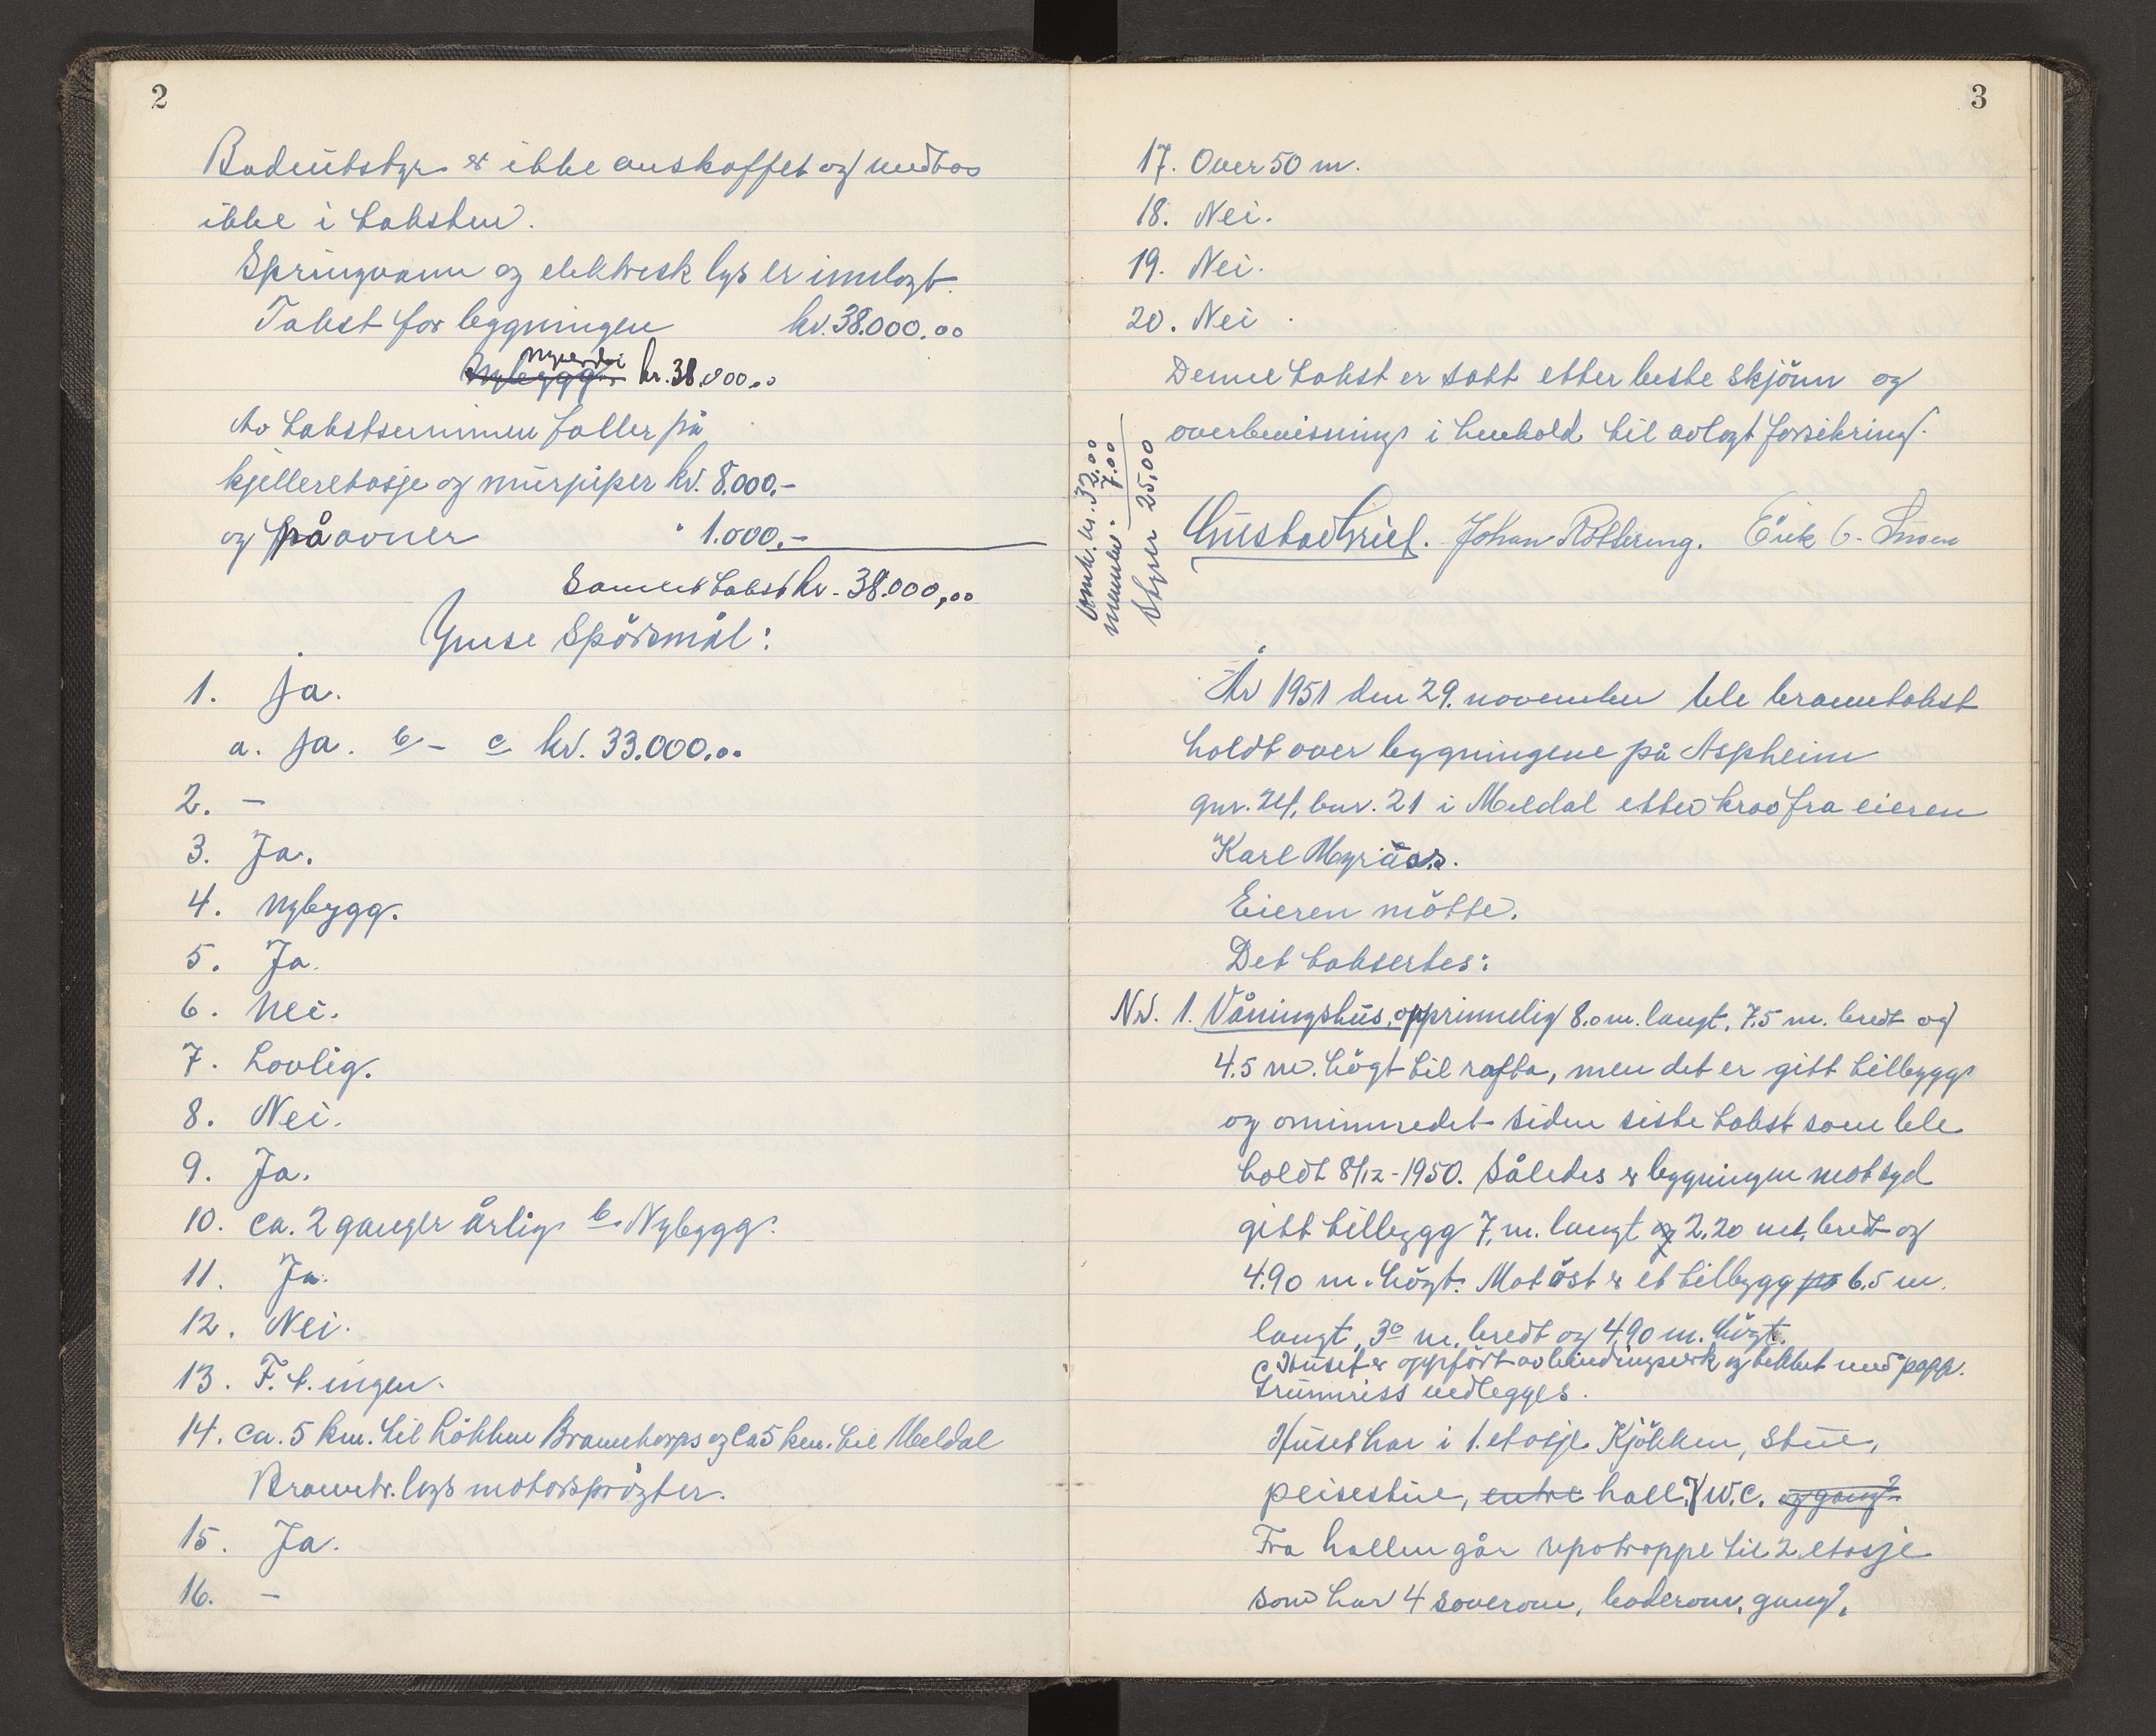 2
Badeutstyr er ikke anskaffet og medtas
ikke i taksten.
Springvann og elektrisk lys er innlagt.
Takst for bygningen kr. 38.000.00
nyverdi
Nybygg kr. 38.000.00
Av takstsummen faller på
kjelleretasje og murpiper kr. 8.000.-
og på ovner " 1.000.-
Samlet takst kr. 38.000,00
Ymse Spörsmål:
1. Ja.
a. Ja. b - c kr. 33.000.00
2. -
3. Ja.
4. Nybygg.
5. Ja.
6. Nei.
7. Lovlig.
8. Nei.
9. Ja.
10. ca. 2 ganger årlig b. Nybygg.
11. Ja.
12. Nei.
13. F. t. ingen.
14. ca. 5 km. til Lökken Brannkorps og ca 5 km. til Meldal
Brannv. lags motorspröyter.
15. Ja.
16. -
3
17. Over 50 m.
18. Nei.
19. Nei.
20. Nei.
Denne takst er satt etter beste skjönn og
overbevisning i henhold til avlagt forsikring.
Omk. kr. 32,00
7.00
Styrer 25,00
Johan Rottering. Eirik G. Snoen
År 1951 den 29. november ble branntakst
holdt over bygningene på Aspheim
gnr. 24, bnr. 21 i Meldal etter krav fra eieren
Karl Myraas.
Eieren mötte.
Det taksertes:
Nr. 1. Våningshus, opprinnelig 8.0 m. langt, 7.5 m. bredt og
4.5 m. högt til rafta, men det er gitt tilbygg
og ominnredet siden siste takst som ble
holdt 8/12-1950. Således er bygningen mot syd
gitt tilbygg 7, m. langt og 2,20 mt, bredt og
4.90 m. högt. Mot öst er et tilbygg på 6.5 m.
langt, 3º m. bredt og 4.90 m. högt.
Huset er oppfört av bindingsverk og tekket med papp.
Grunnriss vedlegges.
Huset har i 1. etasje Kjökken, stue,
peisestue, entre hall og W.C. og gang.
Fra hallen går opotrappe til 2 etasje
som har 4 soverom, baderom, gang,